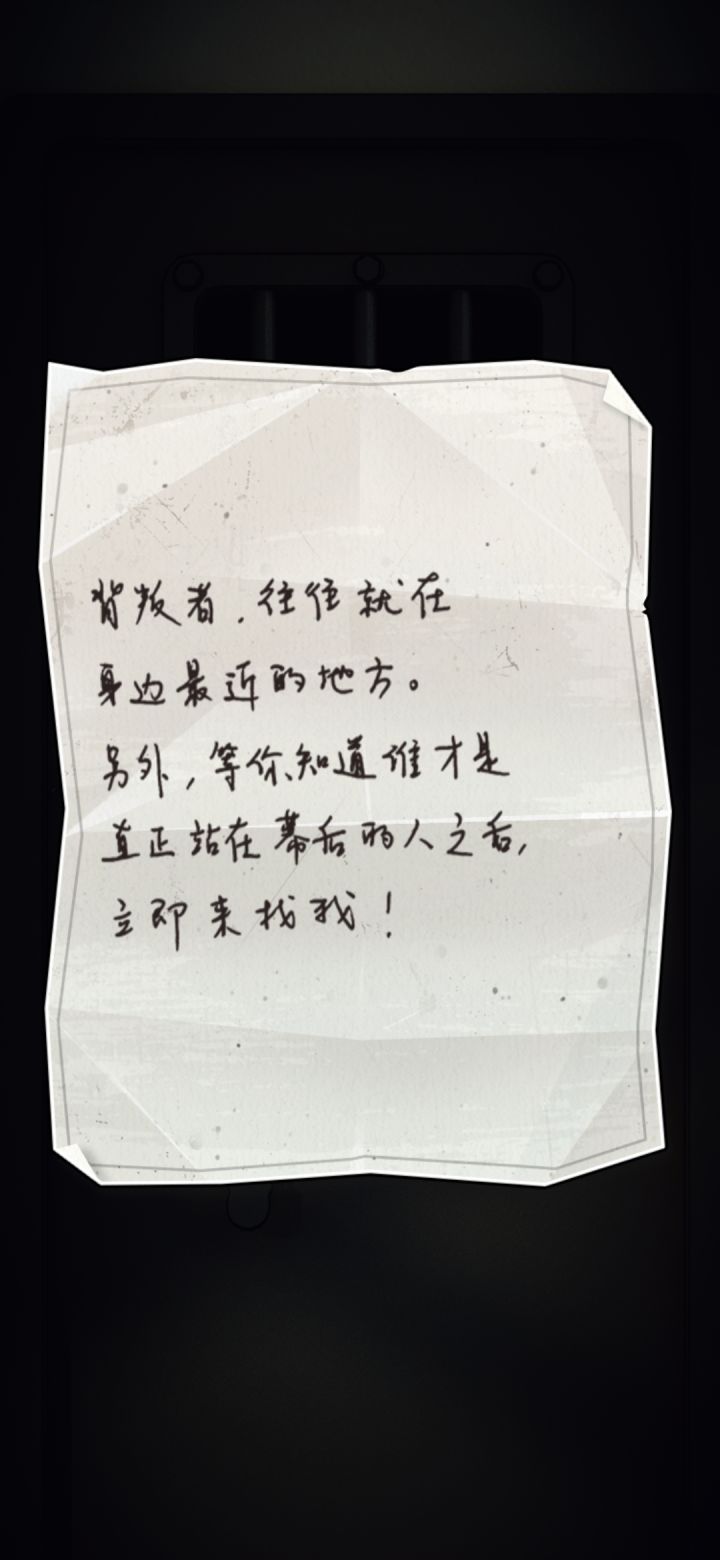 背叛者，往往就在
身边最近的地方。
另外，等你知道谁才是
真正站在幕后的人之后，
立即来找我！